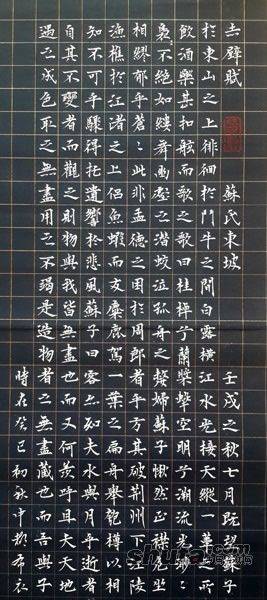 赤壁賦 蘇氏東坡 壬戌之秋七月既望蘇子
於東山之上徘徊於鬥牛之間白露橫江水光接天縱一葦之所
飲酒樂甚扣舷而歌之歌曰桂棹兮蘭槳擊空明兮溯流光渺渺
裊不絕如縷舞幽壑之潛蛟泣孤舟之嫠婦蘇子愀然正襟危坐
相繆郁乎蒼蒼此非孟德之困於周郎者乎方其破荊州下江陵
漁樵於江渚之上侶魚蝦而友麋鹿駕一葉之扁舟舉匏樽以相
知不可乎驟得托遺響於悲風蘇子曰客亦知夫水與月乎逝者
自其不變者而觀之則物與我皆無盡也而又何羨乎且夫天地
遇之成色取之無盡用之不竭是造物者之無盡藏也而吾與子
時在癸巳初秋中布衣